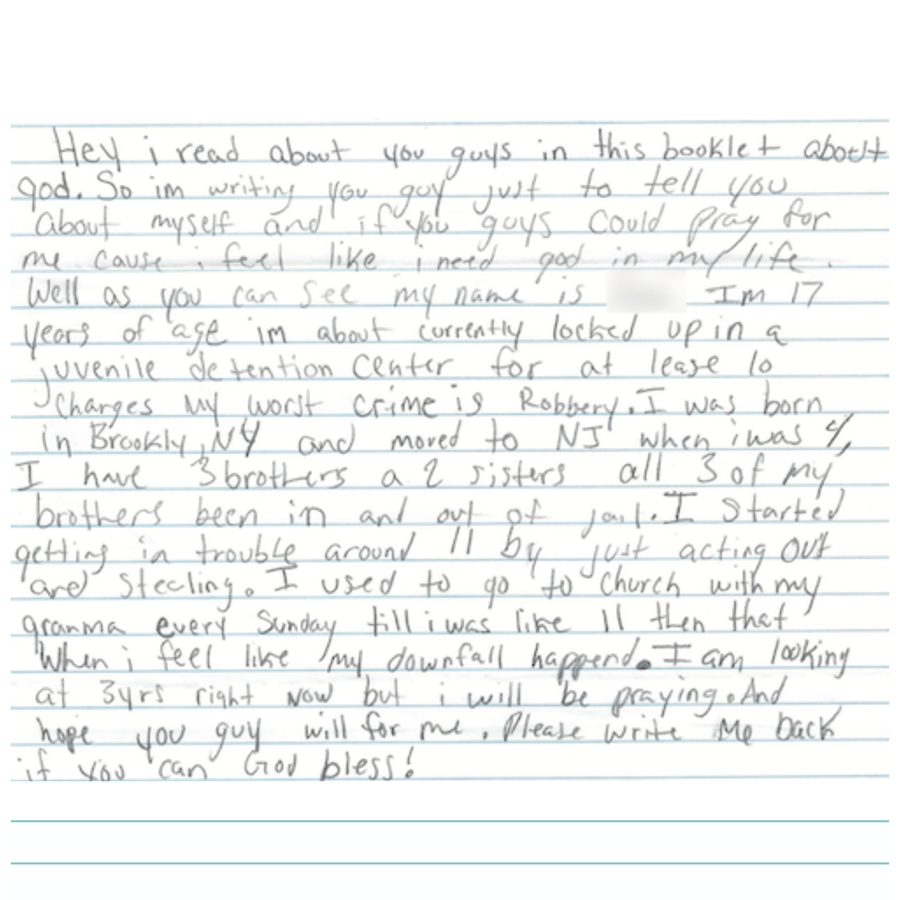 Hey i read about you guys in this booklet about
god. So im writing you guy just to tell you
about myself and if you guys could pray for
me cause i feel like i need god in my life.
Well as you can see my name is Im 17
years of age im about currently locked up in a
juvenile detention center for at lease 10
charges my worst crime is Robbery. I was born
in Brookly, NY and moved to NJ when i was 4,
I have 3 brothers a 2 sisters all 3 of my
brothers been in and out of jail. I started
getting in trouble around 11 by just acting out
and stealing. I used to go to church with my
granma every Sunday till i was like 11 then that
when i feel like my downfall happend. I am looking
at 3yrs right now but i will be praying. And
hope you guy will for me. Please write me back
if you can God bless!